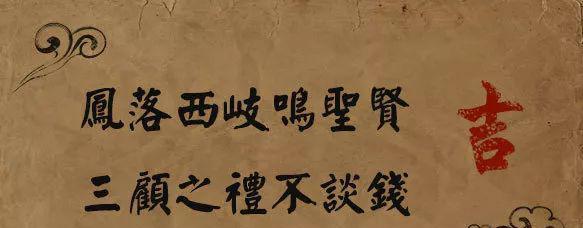 鳳落西岐鳴聖賢
三顧之禮不談錢
吉